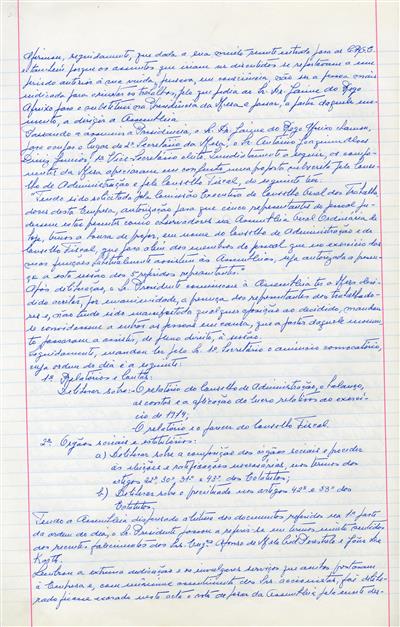 Afirmou, seguidamente, que dada a sua muito recente entrada para a
e também porque os assuntos que iriam ser discutidos se reportavam a um
período anterior à sua vinda, pensava, em consciência, não ser a pessoa mais
indicada para orientar os trabalhos, pelo que pedia ao Sr. Dr. Jaime do Rego
Afreixo para o substituir na Presidência da Mesa e passar, a partir daquele mo-
mento, a dirigir a Assembleia.
Passando a assumir a Presidência, o Sr. Dr. Jaime do Rego Afreixo chamou,
para ocupar o lugar de 2º Secretário da Mesa, o Sr. António Joaquim
Diniz Júnior, Vice-Secretário eleito. Imediatamente a seguir, os compo-
nentes da Mesa apreciaram em conjunto uma proposta subscrita pelo Conse-
lho de Administração e pelo Conselho Fiscal, do seguinte teor:
"Tendo sido solicitada pela Comissão Executiva do Conselho Geral dos Trabalha-
dores desta Empresa, autorização para que cinco representantes do pessoal pu-
dessem estar presentes como observadores na Assembleia Geral Ordinária de
hoje, vimos a honra de propor, em nome do Conselho de Administração e do
Conselho Fiscal, que para além dos membros do pessoal que no exercício das
suas funções habitualmente assistem às Assembleias, seja autorizada a presen-
ça a esta sessão dos 5 referidos representantes."
Após deliberação, o Sr. Presidente comunicou à Assembleia ter a Mesa deci-
dido aceitar, por unanimidade, a presença dos representantes dos trabalhado-
res e, não tendo sido manifestada qualquer oposição ao decidido, mandou-
se convidassem a entrar as pessoas em causa, que a partir daquele momen-
to passaram a assistir, de pleno direito, à sessão.
Seguidamente, mandou ler pelo Sr. 1º Secretário o anúncio convocatório,
cuja ordem do dia é a seguinte:
1ª. Relatórios e Contas:
Deliberar sobre: - O relatório do Conselho de Administração, o balanço,
as contas e a aplicação do lucro relativos ao exercí-
cio de 1974;
O relatório e o parecer do Conselho Fiscal.
2ª. Órgãos sociais e estatutários:
a) Deliberar sobre a composição dos órgãos sociais e proceder
às eleições e ratificações necessárias, nos termos dos
artigos 22º, 30º, 31º e 43º dos Estatutos;
b) Deliberar sobre o preceituado nos artigos 42º e 53º dos
Estatutos.
Tendo a Assembleia dispensado a leitura dos documentos referidos na 1ª parte
da ordem do dia, o Sr. Presidente passou a referir-se em termos muito sentidos
aos recentes falecimentos dos Srs. Engº. Afonso de e João da
Lembrou a extrema dedicação e os invulgares serviços que ambos prestaram
à Empresa e, com unânime assentimento dos Srs. accionistas, foi delibe-
rado ficasse exarado nesta acta o voto de pesar da Assembleia pela morte des-